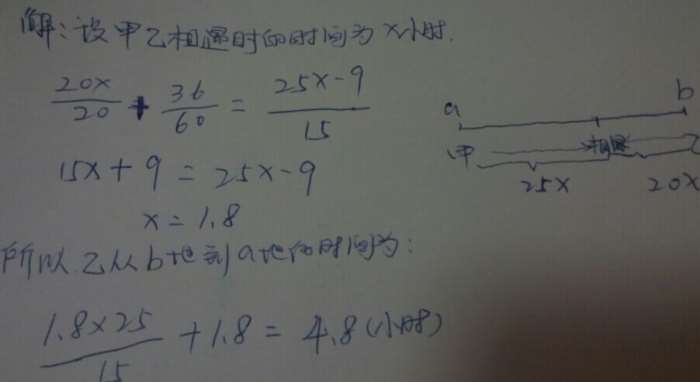 解:设甲乙相遇时的时间为x小时.
20x/20 + 36/60 = 25x-9/15
15x+9=25x-9
x=1.8
所以乙从b地到a地的时间为:
1.8×25/15 +1.8=4.8(小时)
a b
甲 相遇
25x 20x